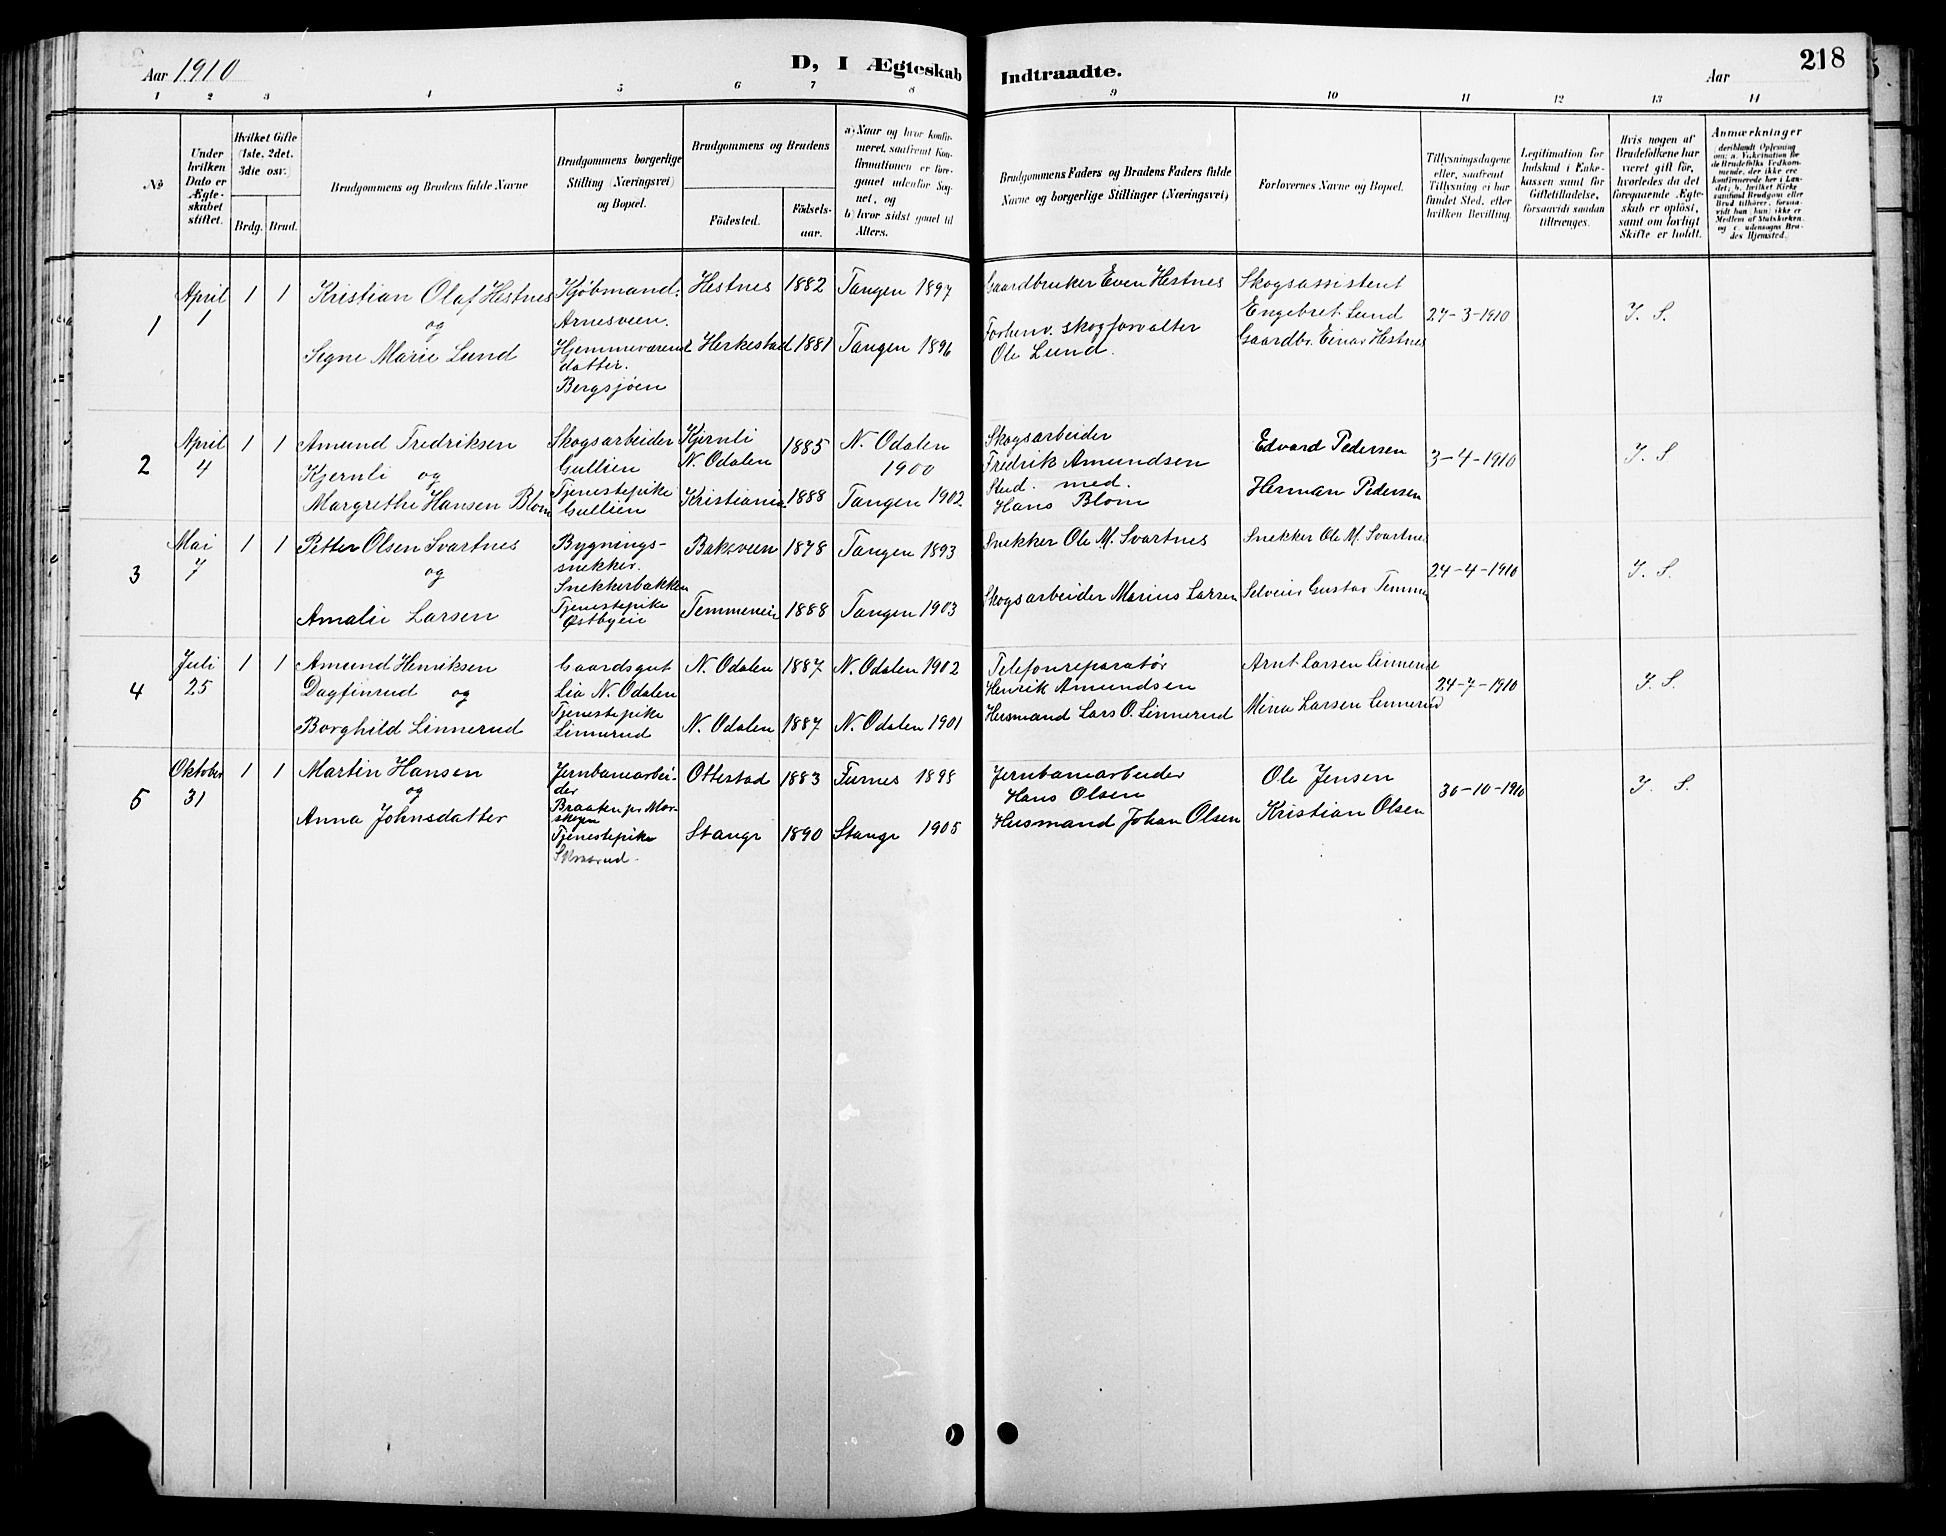 Aar 1910
D, I Ægteskab Indtraadte.
Aar
218
1 2 3 4 5 6 7 8 9 10 11 12 13 14
No
Under hvilken Dato er Ægteskabet stiftet.
Hvilket Gifte (1ste, 2det, 3die osv.)
Brdg. Brud.
Brudgommens og Brudens fulde Navne
Brudgommens borgerlige Stilling (Næringsvei) og Bopæl.
Brudgommens og Brudens
Födested.
Födselsaar.
a) Naar og hvor konfirmeret, saafremt Konfirmationen er foregaaet udenfor Sognet, og
b) hvor sidst gaaet til Alters.
Brudgommens Faders og Brudens Faders fulde Navne og borgerlige Stillinger (Næringsvei)
Forlovernes Navne og Bopæl.
Tillysningsdagene eller, saafremt Tillysning ei har fundet Sted, efter hvilken Bevilling.
Legitimation for Indskud i Enkekassen samt for Giftetilladelse, forsaavidt saadan tiltrænges.
Hvis nogen af Brudefolkene har været gift för, hvorledes da det foregaaende Ægteskab er oplöst, samt om lovligt Skifte er holdt.
Anmærkninger (deriblandt Oplysning om: a. Vakcination for de Brudefolks Vedkommende, der ikke ere konfirmerede her i Landet; b. hvilket Kirkesamfund Brudgom eller Brud tilhörer, forsaavidt han (hun) ikke er Medlem af Statskirken, og c. udensogns Brudes Hjemsted.)
1 April 1 1 1 Kristian Olaf Hestnes Kjöbmand. Arnesveen. Hestnes 1882 Tangen 1897 Gaardbruker Even Hestnes Skogsassistent Engebret Lund 27-3-1910 I. S.
og
Segne Marie Lund Hjemmeværend datter. Bergsjöen Herkestad 1881 Tangen 1896 Forhenv. skogforvalter Ole Lund. Gaardbr. Einar Hestnes
2 April 4 1 1 Amund Fredriksen Kjernli og Skogsarbeider Gullien Kjernli N. Odalen 1885 N. Odalen 1900 Skogsarbeider Fredrik Amundsen Edvard Pedersen 3-4-1910 I. S
Margrethe Hansen Blom Tjenestepike Gullien Kristiania 1888 Tangen 1902. Stud. med. Hans Blom Herman Pedersen
3 Mai 7 1 1 Petter Olsen Svartnes Bygningssnekker. Snekkerbakken Baksveen 1878 Tangen 1893 Snekker Ole M. Svartnes Snekker Ole M. Svartnes 24-4-1910 I. S.
og
Amalie Larsen Tjenestepike Østbyen Temmeneie 1888 Tangen 1903 Skogsarbeider Marius Larsen Selveier Gustav Temmen
4 Juli 25 1 1 Amund Henriksen Dagfinrud og Gaardsgut Lia N. Odalen N. Odalen 1887 N. Odalen 1902 Telefonreparatör Henrik Amundsen Arnt Larsen Linnerud 24-7-1910 I. S.
Borghild Linnerud Tjenestepike Linnerud N. Odalen 1887 N. Odalen 1901 Husmand Lars O. Linnerud Mina Larsen Linnerud
5 Oktober 31 1 1 Martin Hansen Jernbanearbeider Braaten pr Morskogen Ottestad 1883 Furnes 1898 Jernbanearbeider Hans Olsen Ole Jensen 30-10-1910 I. S.
og
Anna Johnsdatter Tjenestepike Stange 1890 Stange 1905 Husmand Johan Olsen Kristian Olsen